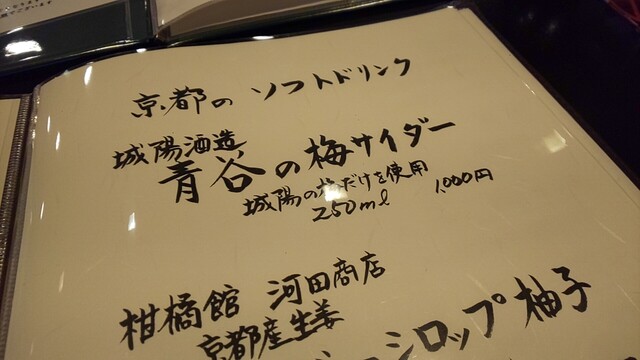 京都の ソフトドリンク
城陽酒造
青谷の梅サイダー
城陽の梅だけを使用
250ml 1,000円
柑橘館 河田商店
京都産生姜
シロップ 柚子